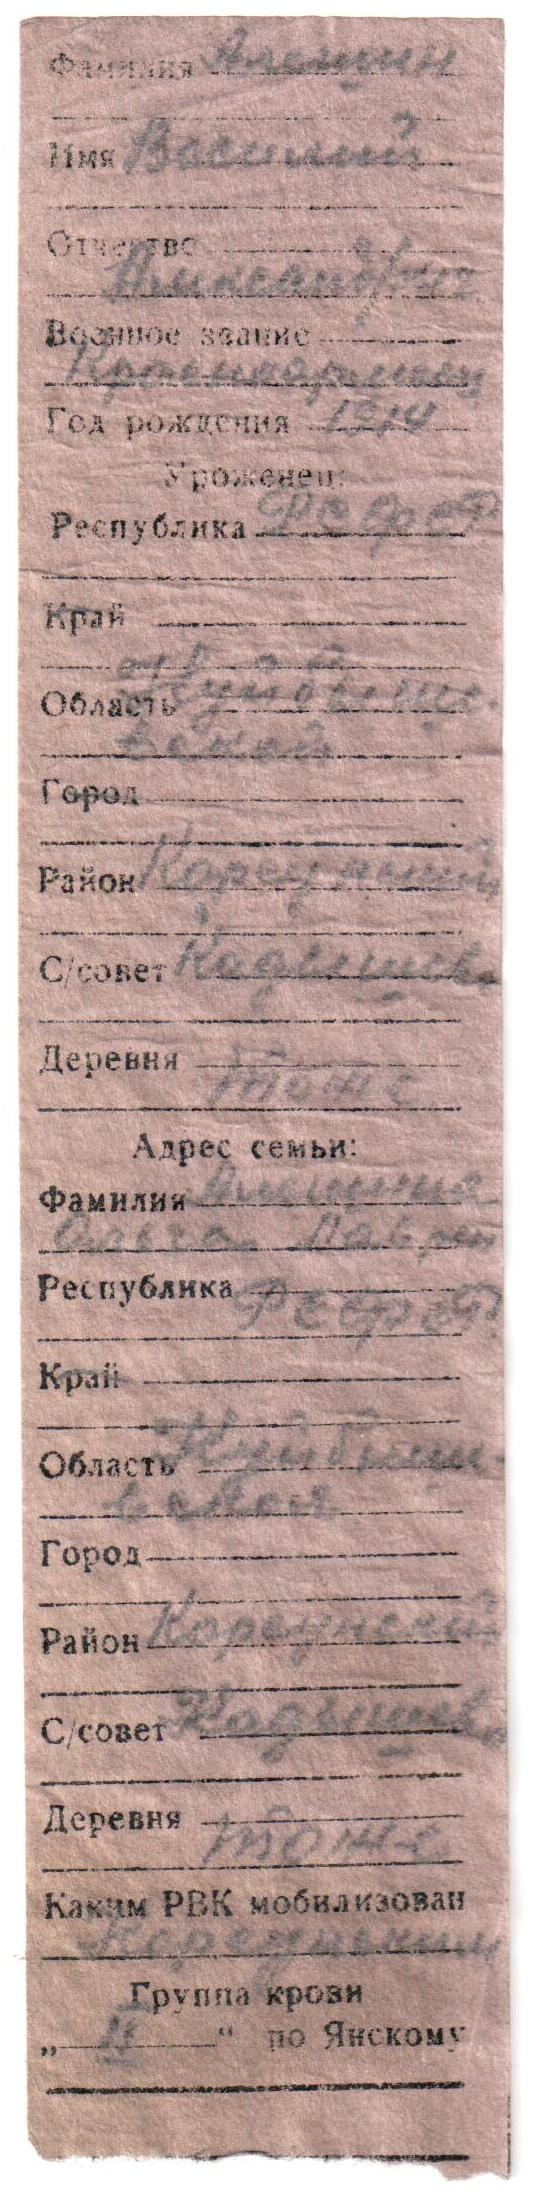 Фамилия Алешин
Имя Василий
Отчество
Александрович
Военное звание
Красноармеец
Год рождения 1914
Уроженец:
Республика РСФСР
Край
Область Куйбыше-
вской
Город
Район Карсунский
С/совет Кадышево
Деревня тоже
Адрес семьи:
Фамилия Алешина
Ольга Лавр
Республика РСФСР
Край
Область Куйбыше-
вская
Город
Район Карсунский
С/совет Кадышево
Деревня тоже
Каким РВК мобилизован
Карсунским
Группа крови
„ II “ по Янскому